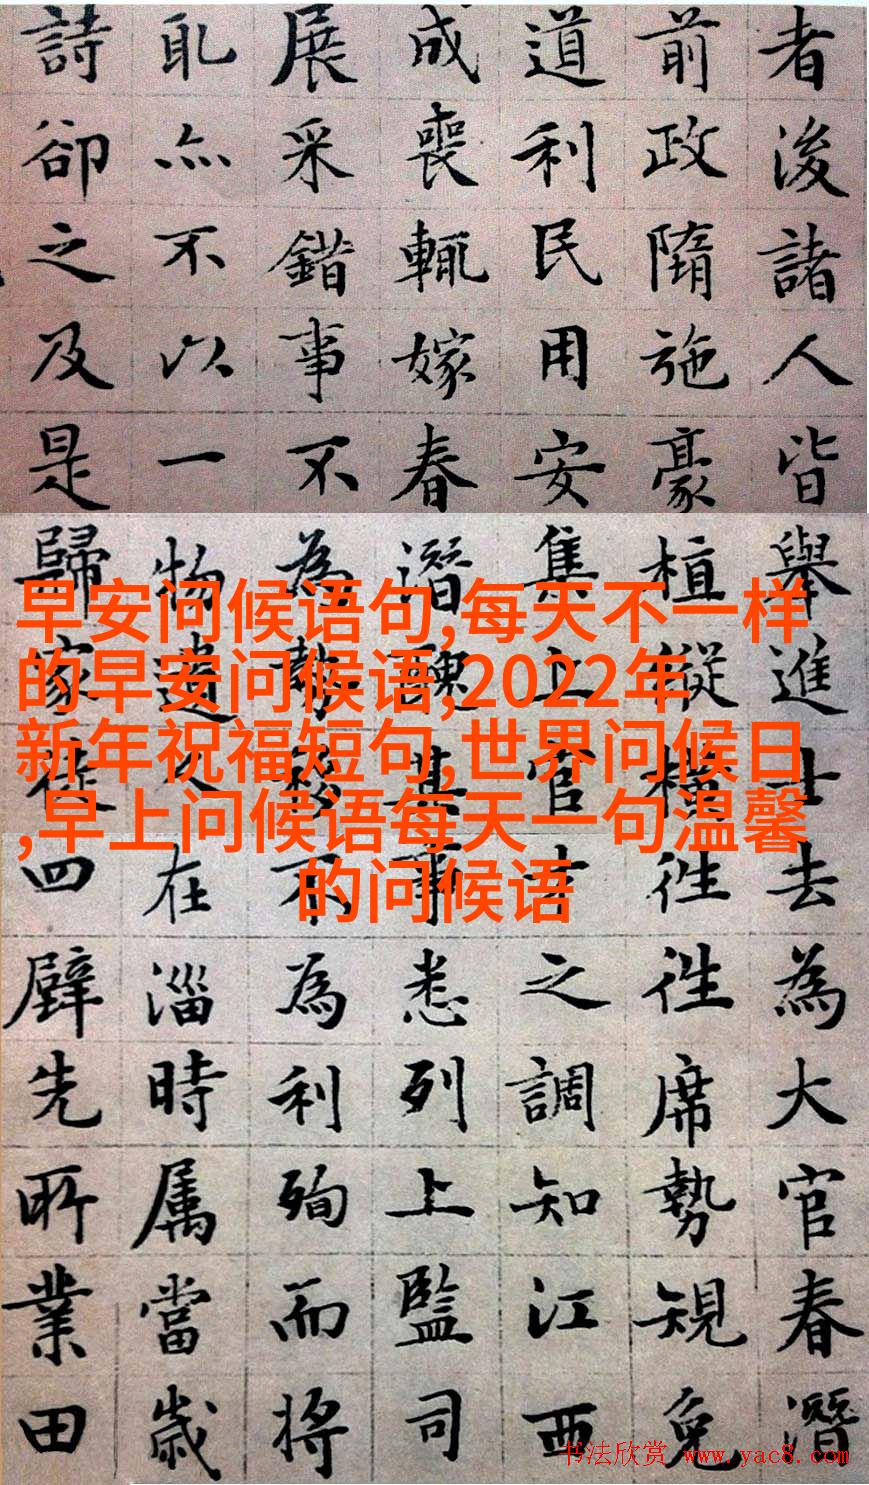 者後諸人皆
前政隋施豪
道利民用安
成喪輒嫁春
展采錯事不
耴亦不以一
詩卻之及是
舉進士去為大官春潛
植縱橫徃徃席勢規免
集上官才之調知江西
潛諫其事悉列上監司
為勢移不為利殉而將
物遺人在淄時属當歲
歸家徒四壁先所業田
早安问候语句,每天不一样
的早安问候语,2022年
新年祝福短句,世界问候日
,早上问候语每天一句温馨
的问候语
书法欣赏 www.yac8.com